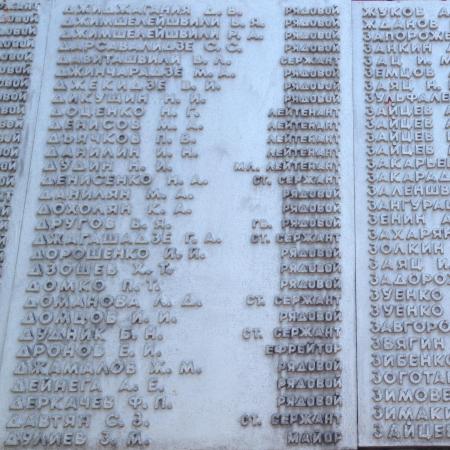 ДЖИДЖАГЕНИЯ Д. В. РЯДОВОЙ
ДЖИМШЕЛЕЙШВИЛИ В. Я. РЯДОВОЙ
ДЖИМШЕЛЕЙШВИЛИ Р. А. РЯДОВОЙ
ДАРСАВАЛИДЗЕ С. С. РЯДОВОЙ
ДАВИТАШВИЛИ В. Л. СЕРЖАНТ
ДЖИНЧАРАДЗЕ М. А. РЯДОВОЙ
ДЖЕКИДЗЕ В. И. РЯДОВОЙ
ДИКУШИН Н. И. РЯДОВОЙ
ДОЦЕНКО П. Г. ЛЕЙТЕНАНТ
ДЕНИСОВ М. А. РЯДОВОЙ
ДОНЦКОВ П. Е. РЯДОВОЙ
ДАНИЛИН И. Н. ЛЕЙТЕНАНТ
ДУДИН Н. И. МЛ. ЛЕЙТЕНАНТ
ДЕНИСЕНКО Н. А. СТ. СЕРЖАНТ
ДАНИЛЯН И. А. РЯДОВОЙ
ДОХОЛЯН К. А. РЯДОВОЙ
ДРУГОВ В. Я. ГВ. РЯДОВОЙ
ДЖАГАШАДЗЕ Г. А. СТ. СЕРЖАНТ
ДОРОШЕНКО И. И. РЯДОВОЙ
ДЗОШЕВ Х. Т. РЯДОВОЙ
ДОМКО П. Т. РЯДОВОЙ
ДОМАНОВА Л. Д. СТ. СЕРЖАНТ
ДОМЦОВ И. И. РЯДОВОЙ
ДУДНИК Б. Н. СТ. СЕРЖАНТ
ДРОНОВ Е. И. ЕФРЕЙТОР
ДЖАМАЛОВ Ж. М. РЯДОВОЙ
ДЕЙНЕГА А. Е. РЯДОВОЙ
ДЕРКАЧЕВ Ф. П. РЯДОВОЙ
ДАВТЯН С. З. СТ. СЕРЖАНТ
ДУЛИЕВ З. М. МАЙОР
ЖУКОВ А
ЖДАНОВ
ЗАПОРОЖЕ
ЗАНКИН
ЗАЦ И. М
ЗЕМЦОВ
ЗАЯЦ Н.
ЗУЛЬФАЛЕ
ЗАЙЦЕВ
ЗАЙЦЕВ
ЗАЙЦЕВ
ЗАЙЦЕВ
ЗАКАРЬЕ
ЗАКАРАД
ЗАЛЕНШВ
ЗАНГУРА
ЗЕНИН
ЗАХАРЯН
ЗОЛКИН
ЗАЯЦ И
ЗАДОРО
ЗУЕНКО
ЗУЕНКО
ЗАВГОРО
ЗВЯГИН
ЗИБЕНКО
ЗОГОТА
ЗИМОВЕ
ЗИМАКИ
ЗАЙЦЕВ